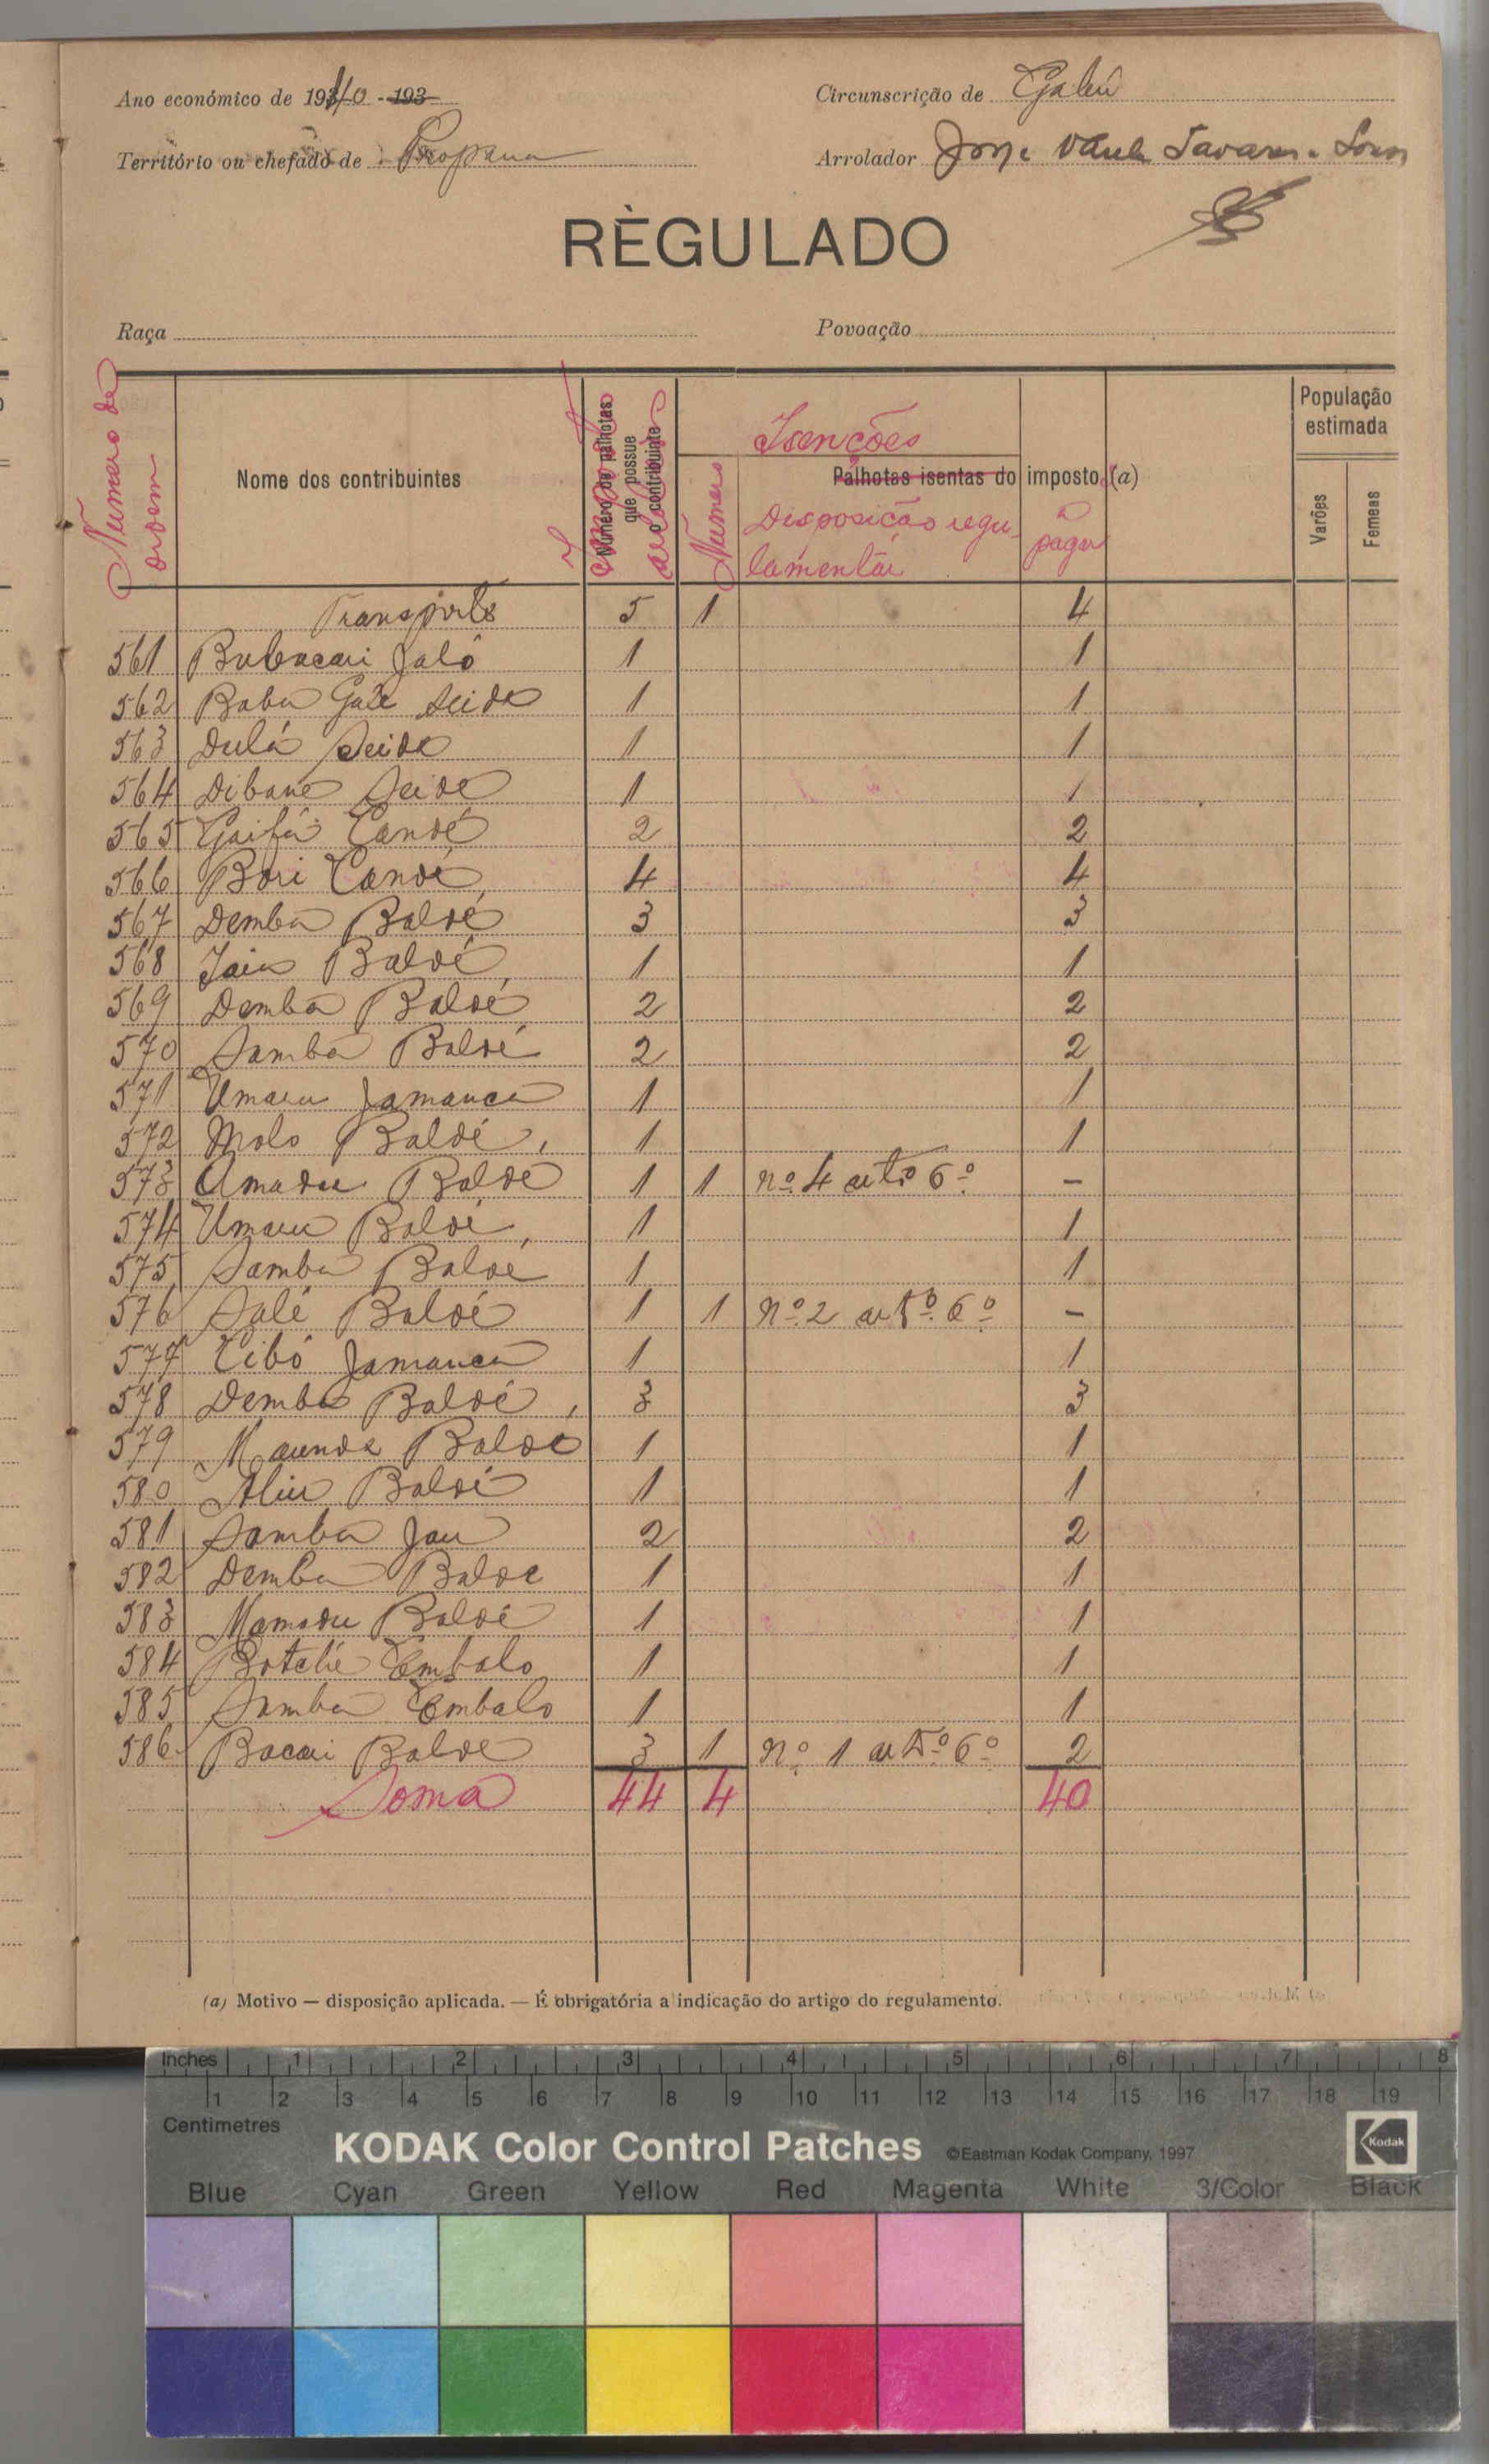 Ano económico de 1940 - 193
Circunscrição de Gabú
Território ou chefado de Propana
Arrolador Jorge Tavares
RÈGULADO
Raça
Povoação
Número de ordem
Nome dos contribuintes
Número de palhotas que possue o contribuinte
Isenções
Palhotas isentas do imposto (a)
Número
Disposição regulamentar
a pagar
População estimada
Varões
Femeas
Transporte 5 1 4
561 Bubacari Jaló 1 1
562 Babu Galé Seide 1 1
563 Dulá Seide 1 1
564 Dibane Seide 1 1
565 Gaifá Candé 2 2
566 Bori Candé 4 4
567 Demba Baldé 3 3
568 Baldé 1 1
569 Demba Baldé 2 2
570 Samba Baldé 2 2
571 Umaru Jamanca 1 1
572 Molo Baldé 1 1
573 Amadu Baldé 1 1 nº 4 artº 6º -
574 Umaru Baldé 1 1
575 Samba Baldé 1 1
576 Salé Baldé 1 1 nº 2 artº 6º -
577 Cibó Jamanca 1 1
578 Demba Baldé 3 3
579 Maunde Baldé 1 1
580 Aliu Baldé 1 1
581 Samba Jau 2 2
582 Demba Balde 1 1
583 Mamadu Baldé 1 1
584 Botché Embalo 1 1
585 Samba Embalo 1 1
586 Bacari Balde 3 1 nº 1 artº 6º 2
Soma 44 4 40
(a) Motivo — disposição aplicada. — É obrigatória a indicação do artigo do regulamento.
Inches 1 2 3 4 5 6 7 8
1 2 3 4 5 6 7 8 9 10 11 12 13 14 15 16 17 18 19
Centimetres
KODAK Color Control Patches ©Eastman Kodak Company, 1997 Kodak
Blue Cyan Green Yellow Red Magenta White 3/Color Black